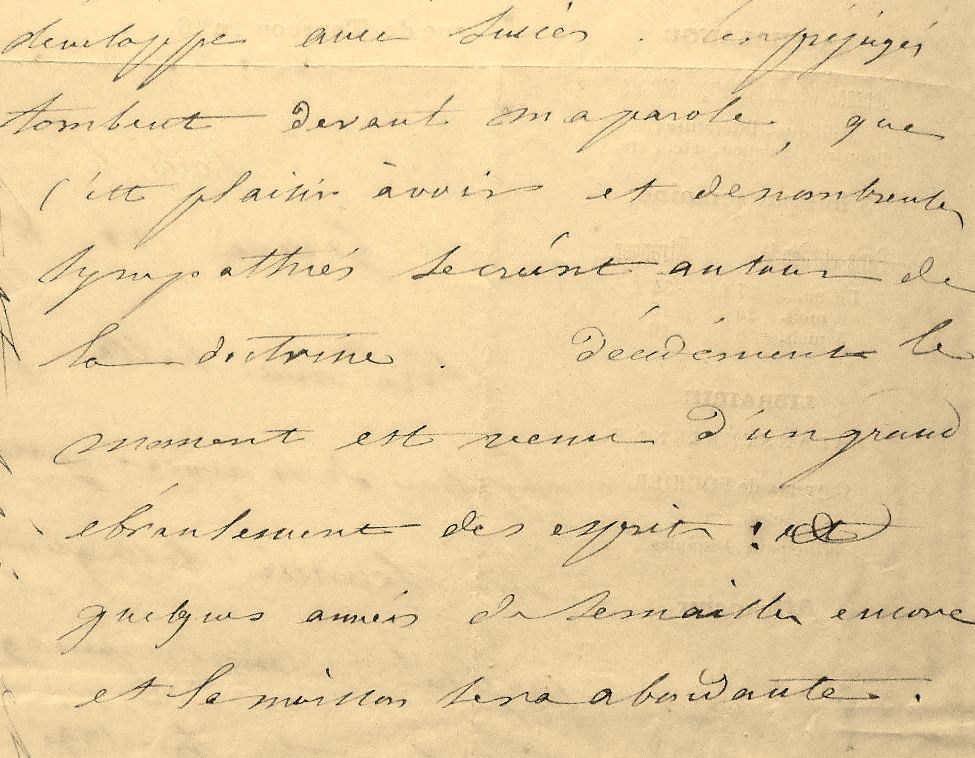 développe avec succès. Les préjugés
tombent devant ma parole, que
c'est plaisir à voir et de nombreuses
sympathies se créent autour de
la doctrine. Décidément le
moment est venu d'un grand
ébranlement des esprits !
quelques années de semailles encore
et la moisson sera abondante.